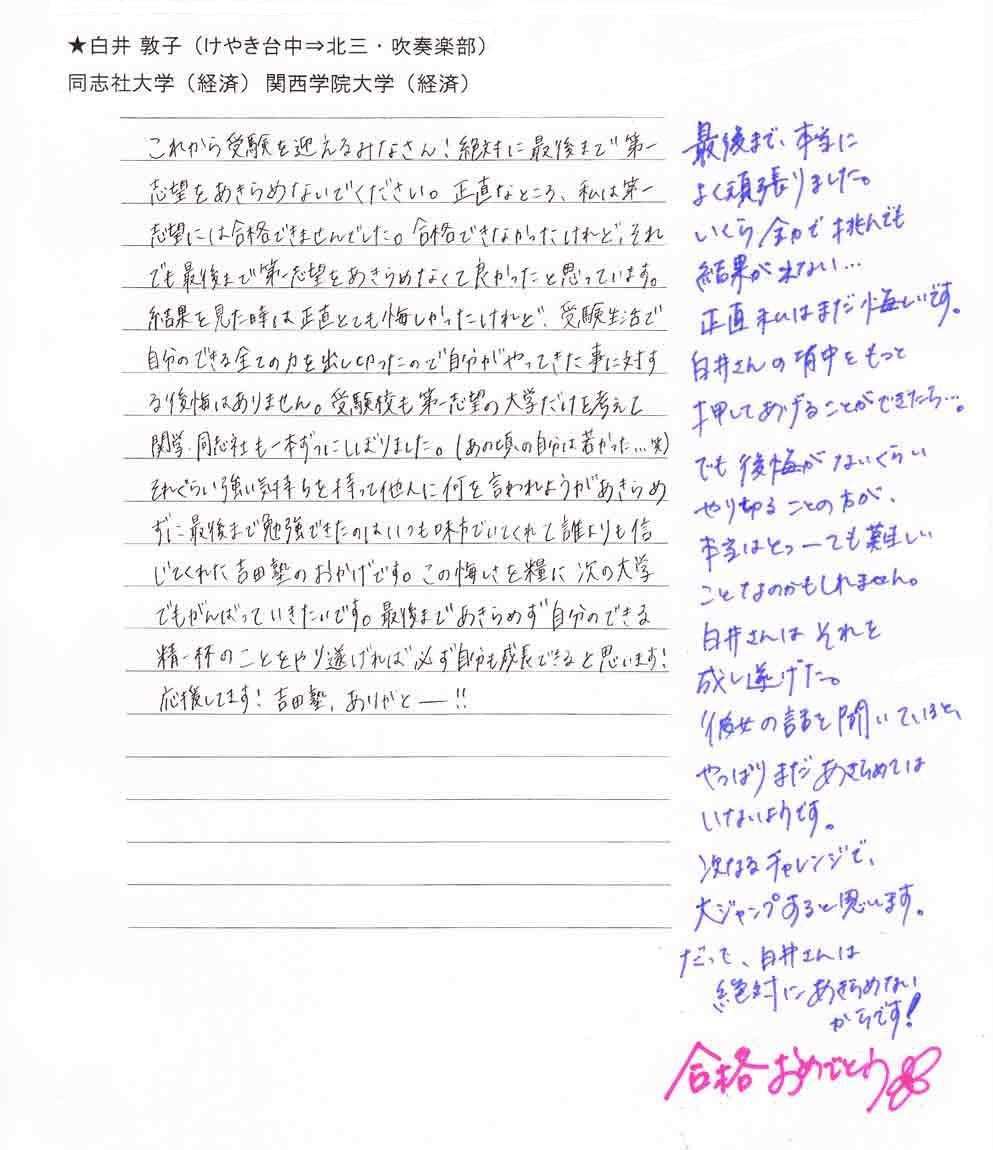 ★白井 敦子（けやき台中⇒北三・吹奏楽部）
同志社大学（経済） 関西学院大学（経済）
これから受験を迎えるみなさん！絶対に最後まで第一
志望をあきらめないでください。正直なところ、私は第一
志望には合格できませんでした。合格できなかったけれど、それ
でも最後まで第一志望をあきらめなくて良かったと思っています。
結果を見た時は正直とても悔しかったけれど、受験生活で
自分のできる全ての力を出し切ったので自分がやってきた事に対す
る後悔はありません。受験校も第一志望の大学だけを考えて
関学、同志社も一本ずつにしぼりました。（あの頃の自分は若かった…笑）
それぐらい強い気持ちを持って他人に何を言われようがあきらめ
ずに最後まで勉強できたのはいつも味方でいてくれて誰よりも信
じてくれた吉田塾のおかげです。この悔しさを糧に次の大学
でもがんばっていきたいです。最後まであきらめず自分のできる
精一杯のことをやり遂げれば必ず自分も成長できると思います！
応援してます！吉田塾、ありがとー！！
最後まで、本当に
よく頑張りました。
いくら全力で挑んでも
結果が出ない…
正直私はまだ悔しいです。
白井さんの背中をもっと
押してあげることができたら…。
でも後悔がないくらい
やり切ることの方が、
本当はとっーても難しい
ことなのかもしれません。
白井さんはそれを
成し遂げた。
彼女の話を聞いていると、
やっぱりまだあきらめては
いけないようです。
次なるチャレンジで、
大ジャンプすると思います。
だって、白井さんは
絶対にあきらめない
からです！
合格おめでとう